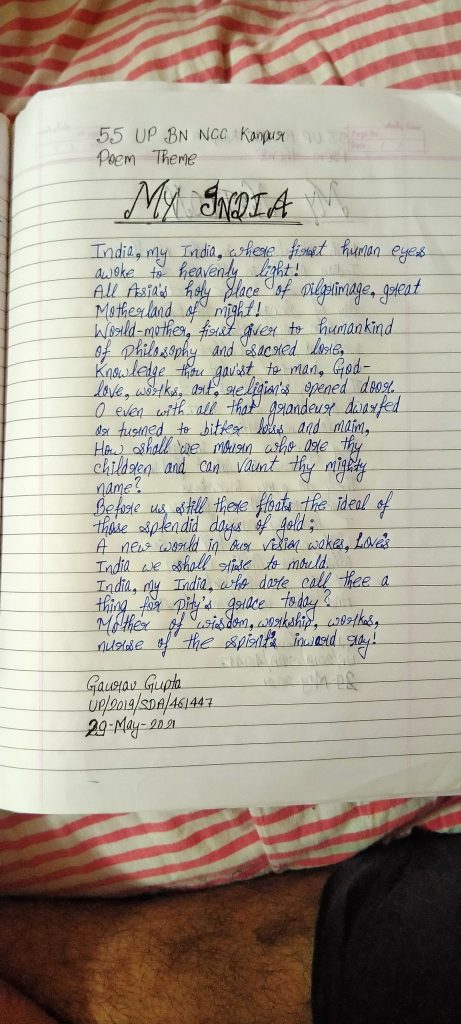 55 UP BN NCC Kanpur
Poem Theme
MY INDIA
India, my India, where first human eyes
awoke to heavenly light!
All Asia's holy place of pilgrimage, great
Motherland of might!
World-mother, first giver to humankind
of philosophy and sacred lore,
Knowledge thou gav'st to man, God-
love, works, art, religion's opened door.
O even with all that grandeur dwarfed
or turned to bitter loss and maim,
How shall we mourn who are thy
children and can vaunt thy mighty
name?
Before us still there floats the ideal of
those splendid days of gold;
A new world in our vision wakes, Love's
India we shall rise to mould.
India, my India, who dare call thee a
thing for pity's grace today?
Mother of wisdom, workship, works,
nurse of the spirit's inward ray!
Gaurav Gupta
UP/2019/SDA/461447
29-May-2021